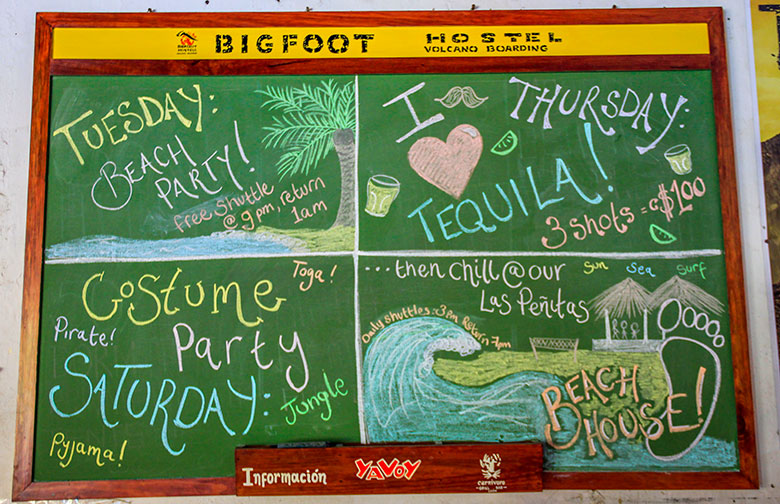 BIGFOOT HOSTEL
VOLCANO BOARDING
TUESDAY:
BEACH
PARTY!
free shuttle
@ 9pm, return
1am
THURSDAY:
I
TEQUILA!
3 shots = C$100
Costume
Toga!
Pirate!
Party
SATURDAY:
Jungle
Pyjama!
...then chill @ our
Las Peñitas
Sun Sea Surf
Daily shuttles: 3pm Return 7pm
BEACH
HOUSE!
Información
YAVOY
carnivoro